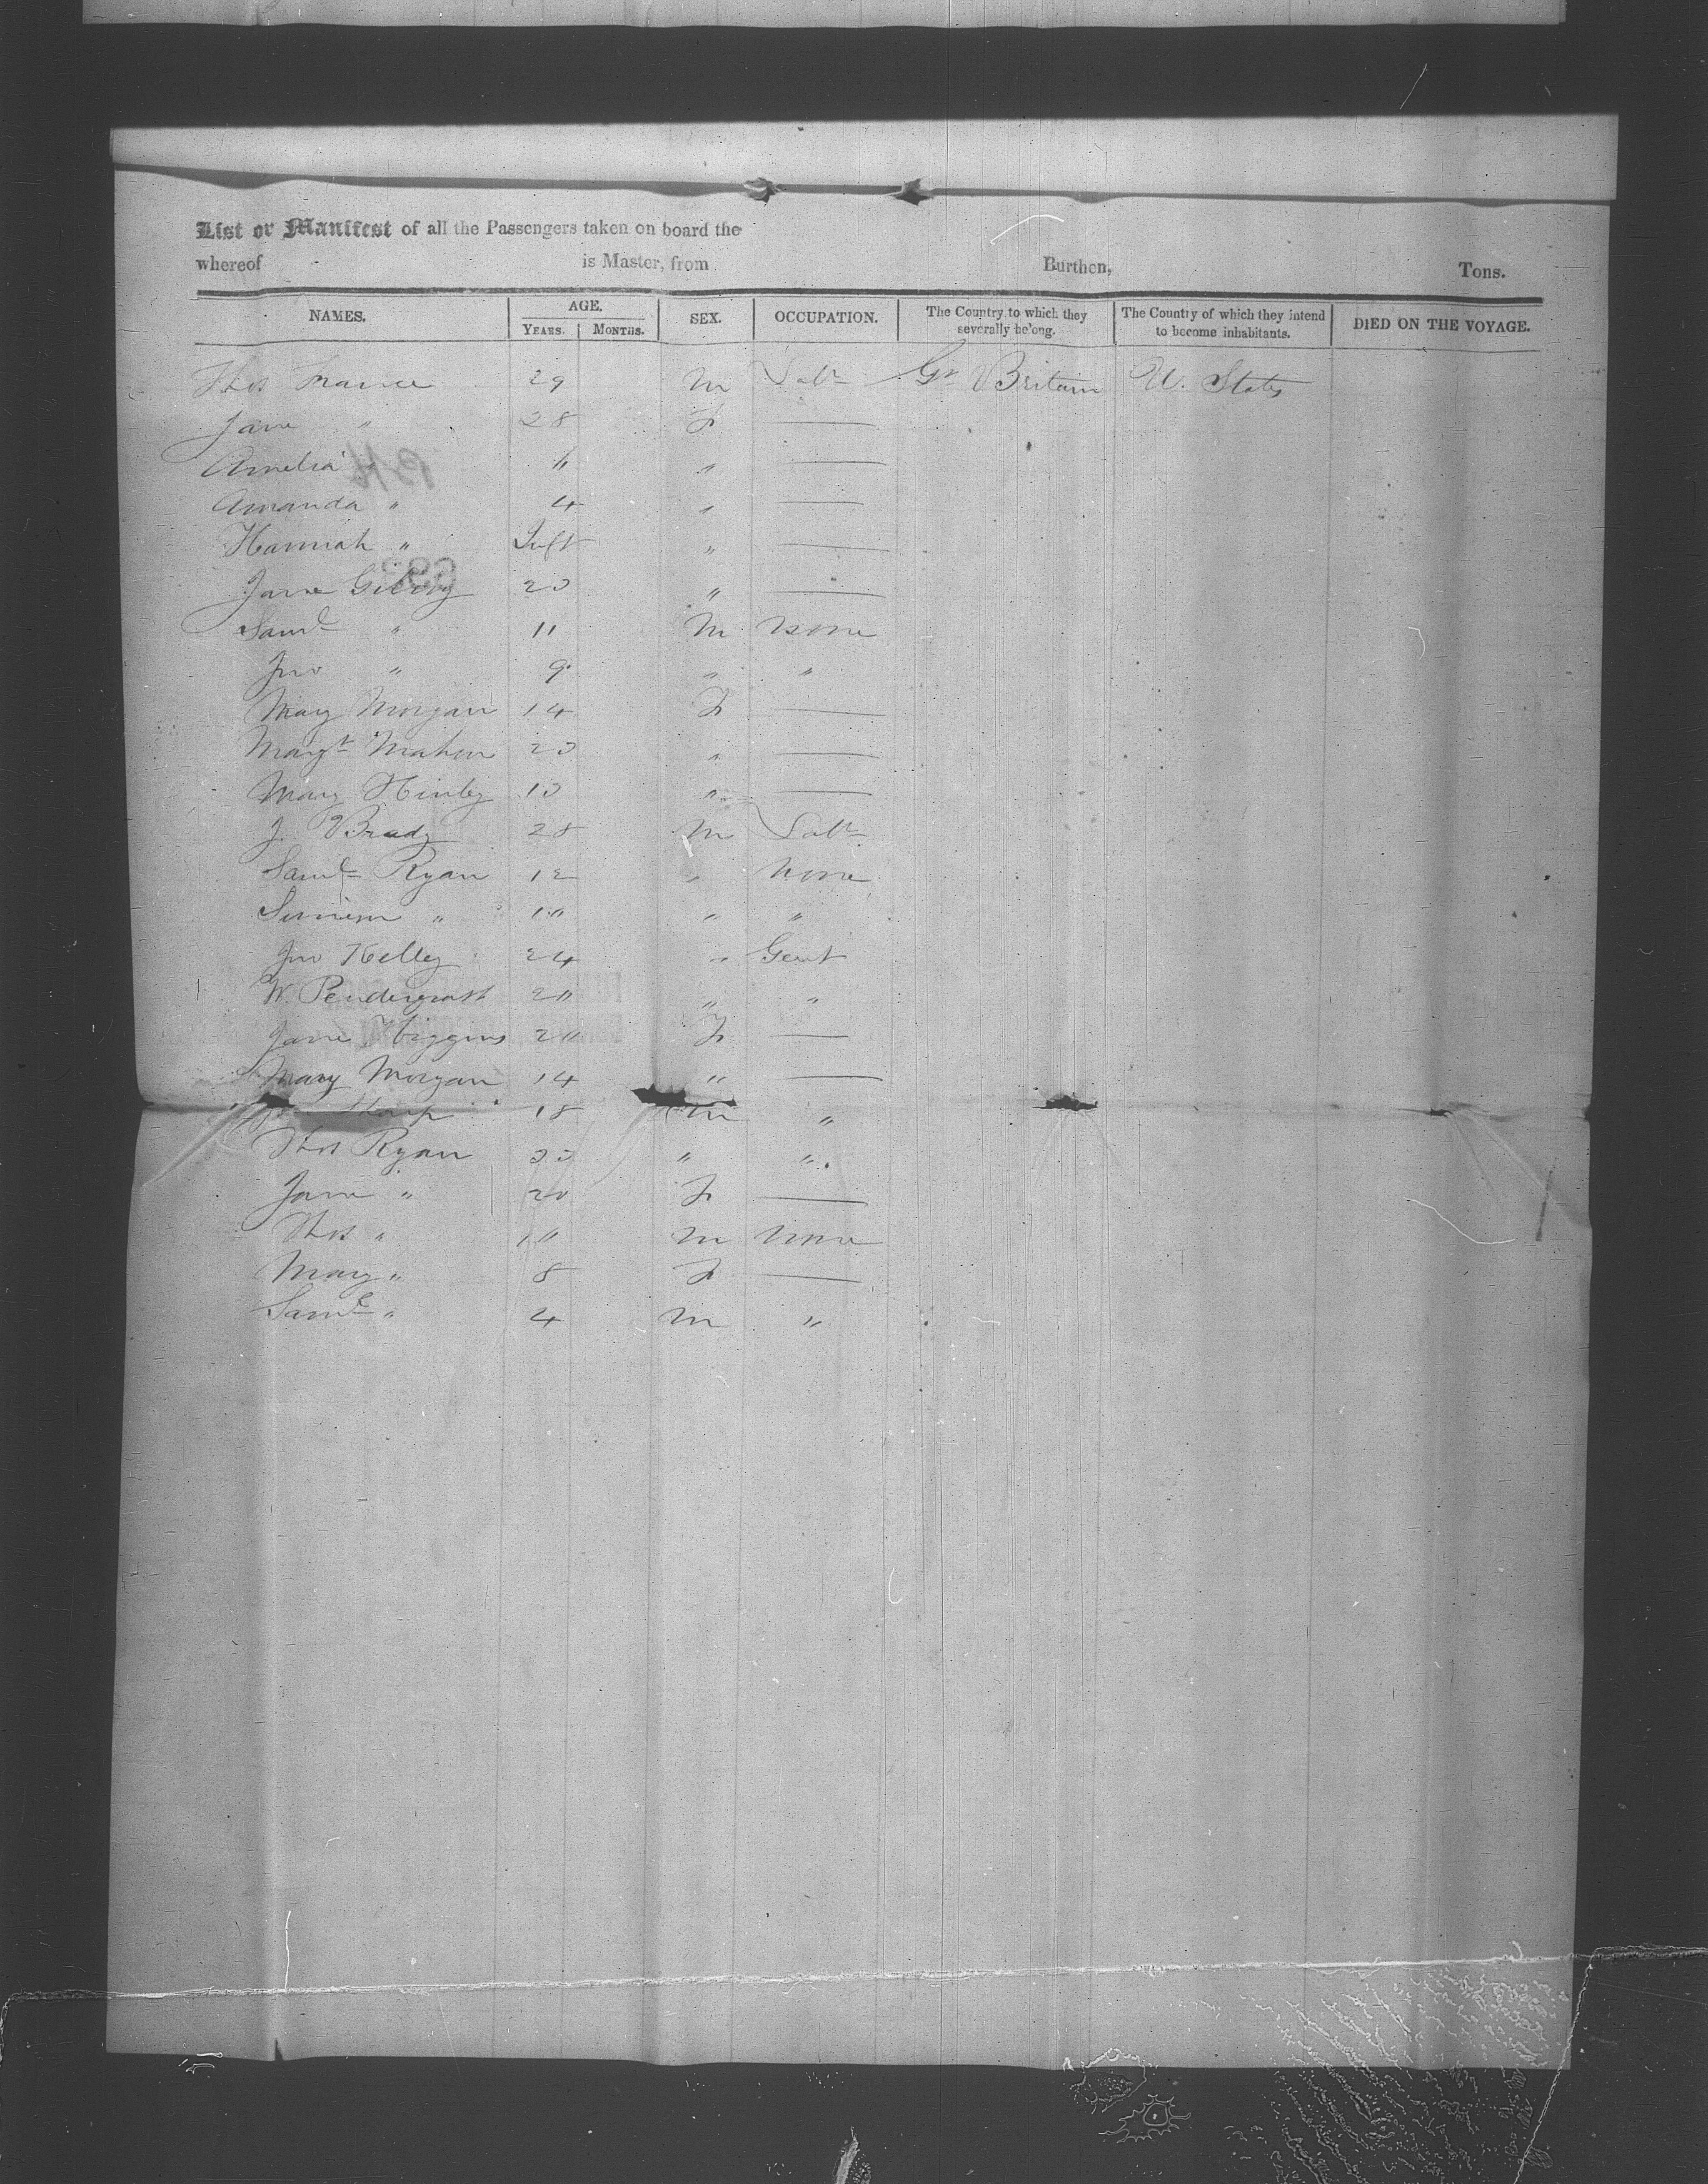 List or Manifest of all the Passengers taken on board the
whereof is Master, from Burthen, Tons.
NAMES. AGE. SEX. OCCUPATION. The Country to which they severally belong. The Country of which they intend to become inhabitants. DIED ON THE VOYAGE.
YEARS. MONTHS.
Thos France 29 M Labr Gt Britain U. States
Jane " 28 F
Amelia " "
Amanda " 4 "
Hannah " Inft "
Jane 20 "
Saml " 11 M None
Jno " 9 " "
Mary Morgan 14 F
Margt Mahon 20 "
Mary 10 "
J. Brady 28 M Labr
Saml Ryan 12 " None
" 10 " "
Jno Kelley 24 " Gent
W. Pendergrast 20 " "
Jane Higgins 20 F
Mary Morgan 14 "
18 M "
Thos Ryan " "
Jane " 20 F
Thos " 10 M None
Mary " 8 F
Saml " 4 M "